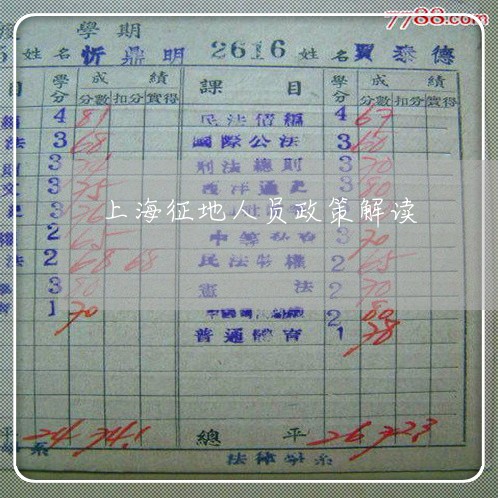 7788.com
學期
姓名 忻鼎明 2616 姓名 賈泰德
目 學分 成績 課目 學分 成績
分數 扣分 實得 分數 扣分 實得
4 81 民法債編 4 67
法 3 68 國際公法 3 60
3 刑法總則 3 70
3 75 西洋通史 3 80
3
上海征地人员政策解读
2 65 3 70
法 2 68 68 民法物權 2 65
3 80 憲法 2 70
1 70 2 80
普通體育 1 78
平 24 74.1 總平 26 72.3
系 法律學系